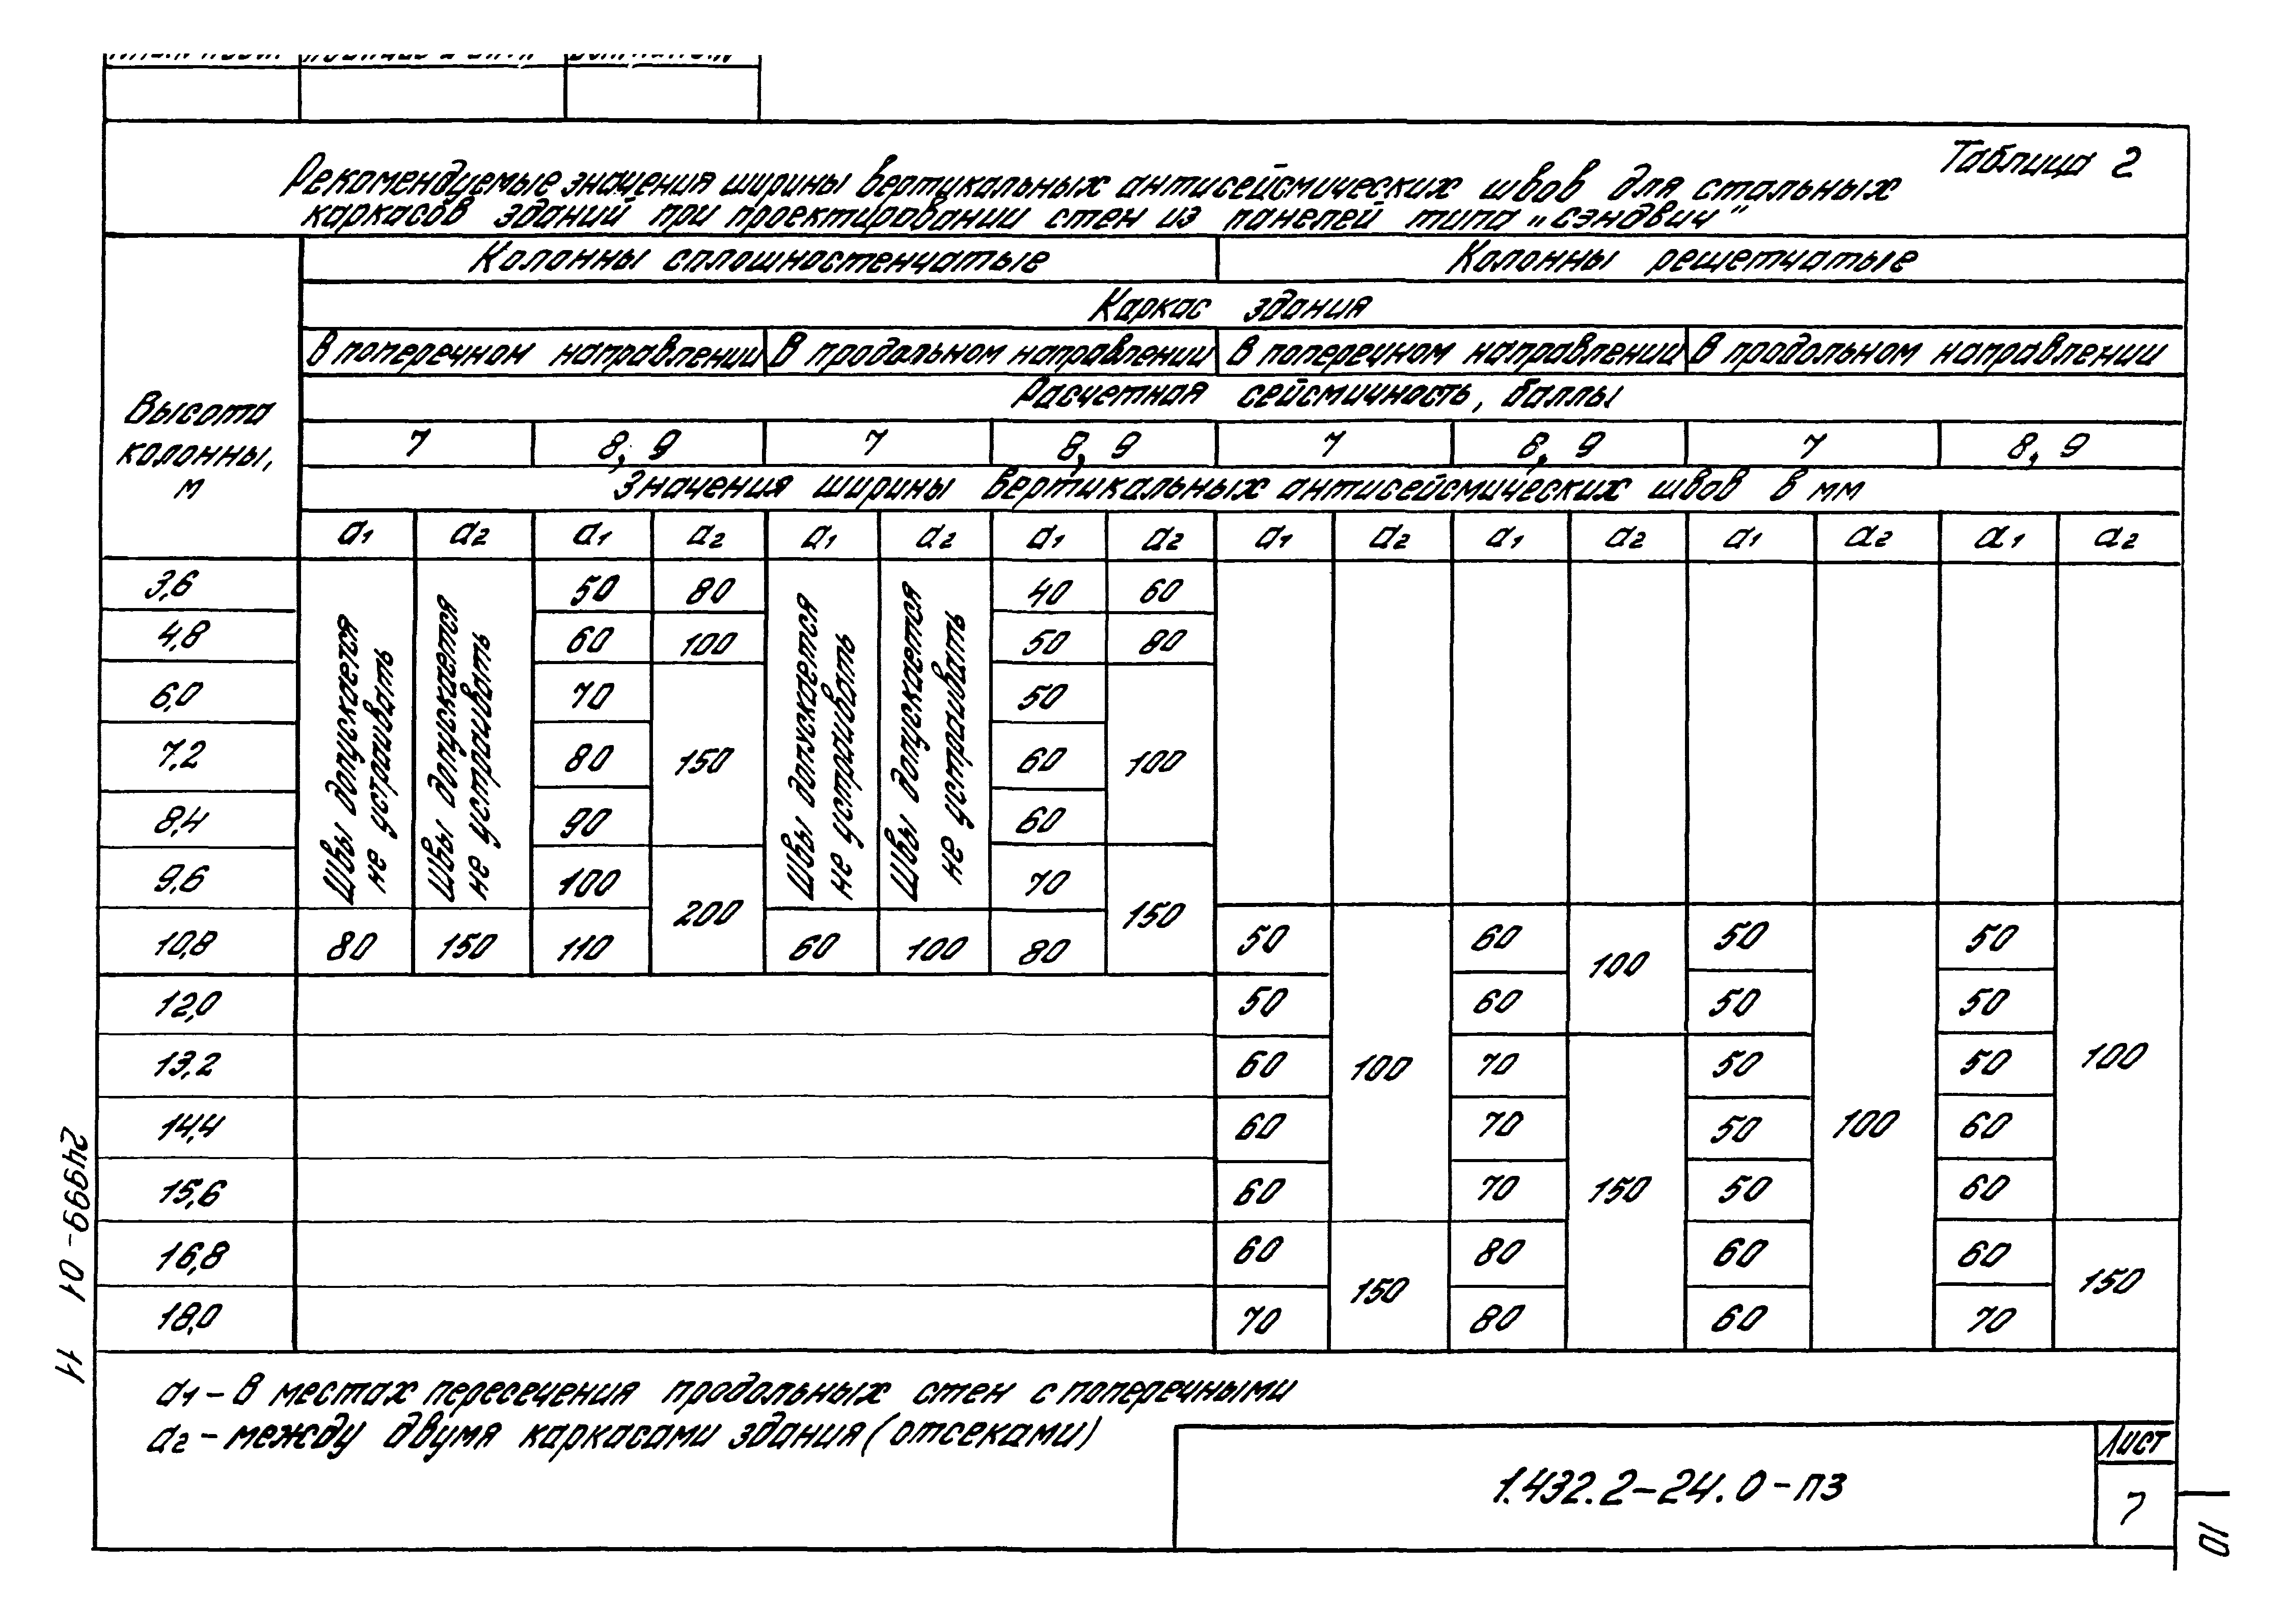 Таблица 2
Рекомендуемые значения ширины вертикальных антисейсмических швов для стальных
каркасов зданий при проектировании стен из панелей типа „сэндвич"
Высота
колонны,
м
Колонны сплошностенчатые Колонны решетчатые
Каркас здания
В поперечном направлении В продольном направлении В поперечном направлении В продольном направлении
Расчетная сейсмичность, баллы
7 8, 9 7 8, 9 7 8, 9 7 8, 9
Значения ширины вертикальных антисейсмических швов в мм
а1 а2 а1 а2 а1 а2 а1 а2 а1 а2 а1 а2 а1 а2 а1 а2
Швы допускается
не устраивать
Швы допускается
не устраивать
Швы допускается
не устраивать
Швы допускается
не устраивать
3,6 50 80 40 60
4,8 60 100 50 80
6,0 70 50
7,2 80 150 60 100
8,4 90 60
9,6 100 200 70 150
10,8 80 150 110 60 100 80 50 60 100 50 50
12,0 50 60 50 50
13,2 60 100 70 50 50 100
14,4 60 70 50 100 60
15,6 60 70 150 50 60
16,8 60 150 80 60 60 150
18,0 70 80 60 70
а1 – в местах пересечения продольных стен с поперечными
а2 – между двумя каркасами здания (отсеками)
1.432.2-24.0-ПЗ
Лист
7
24999-01 11
10